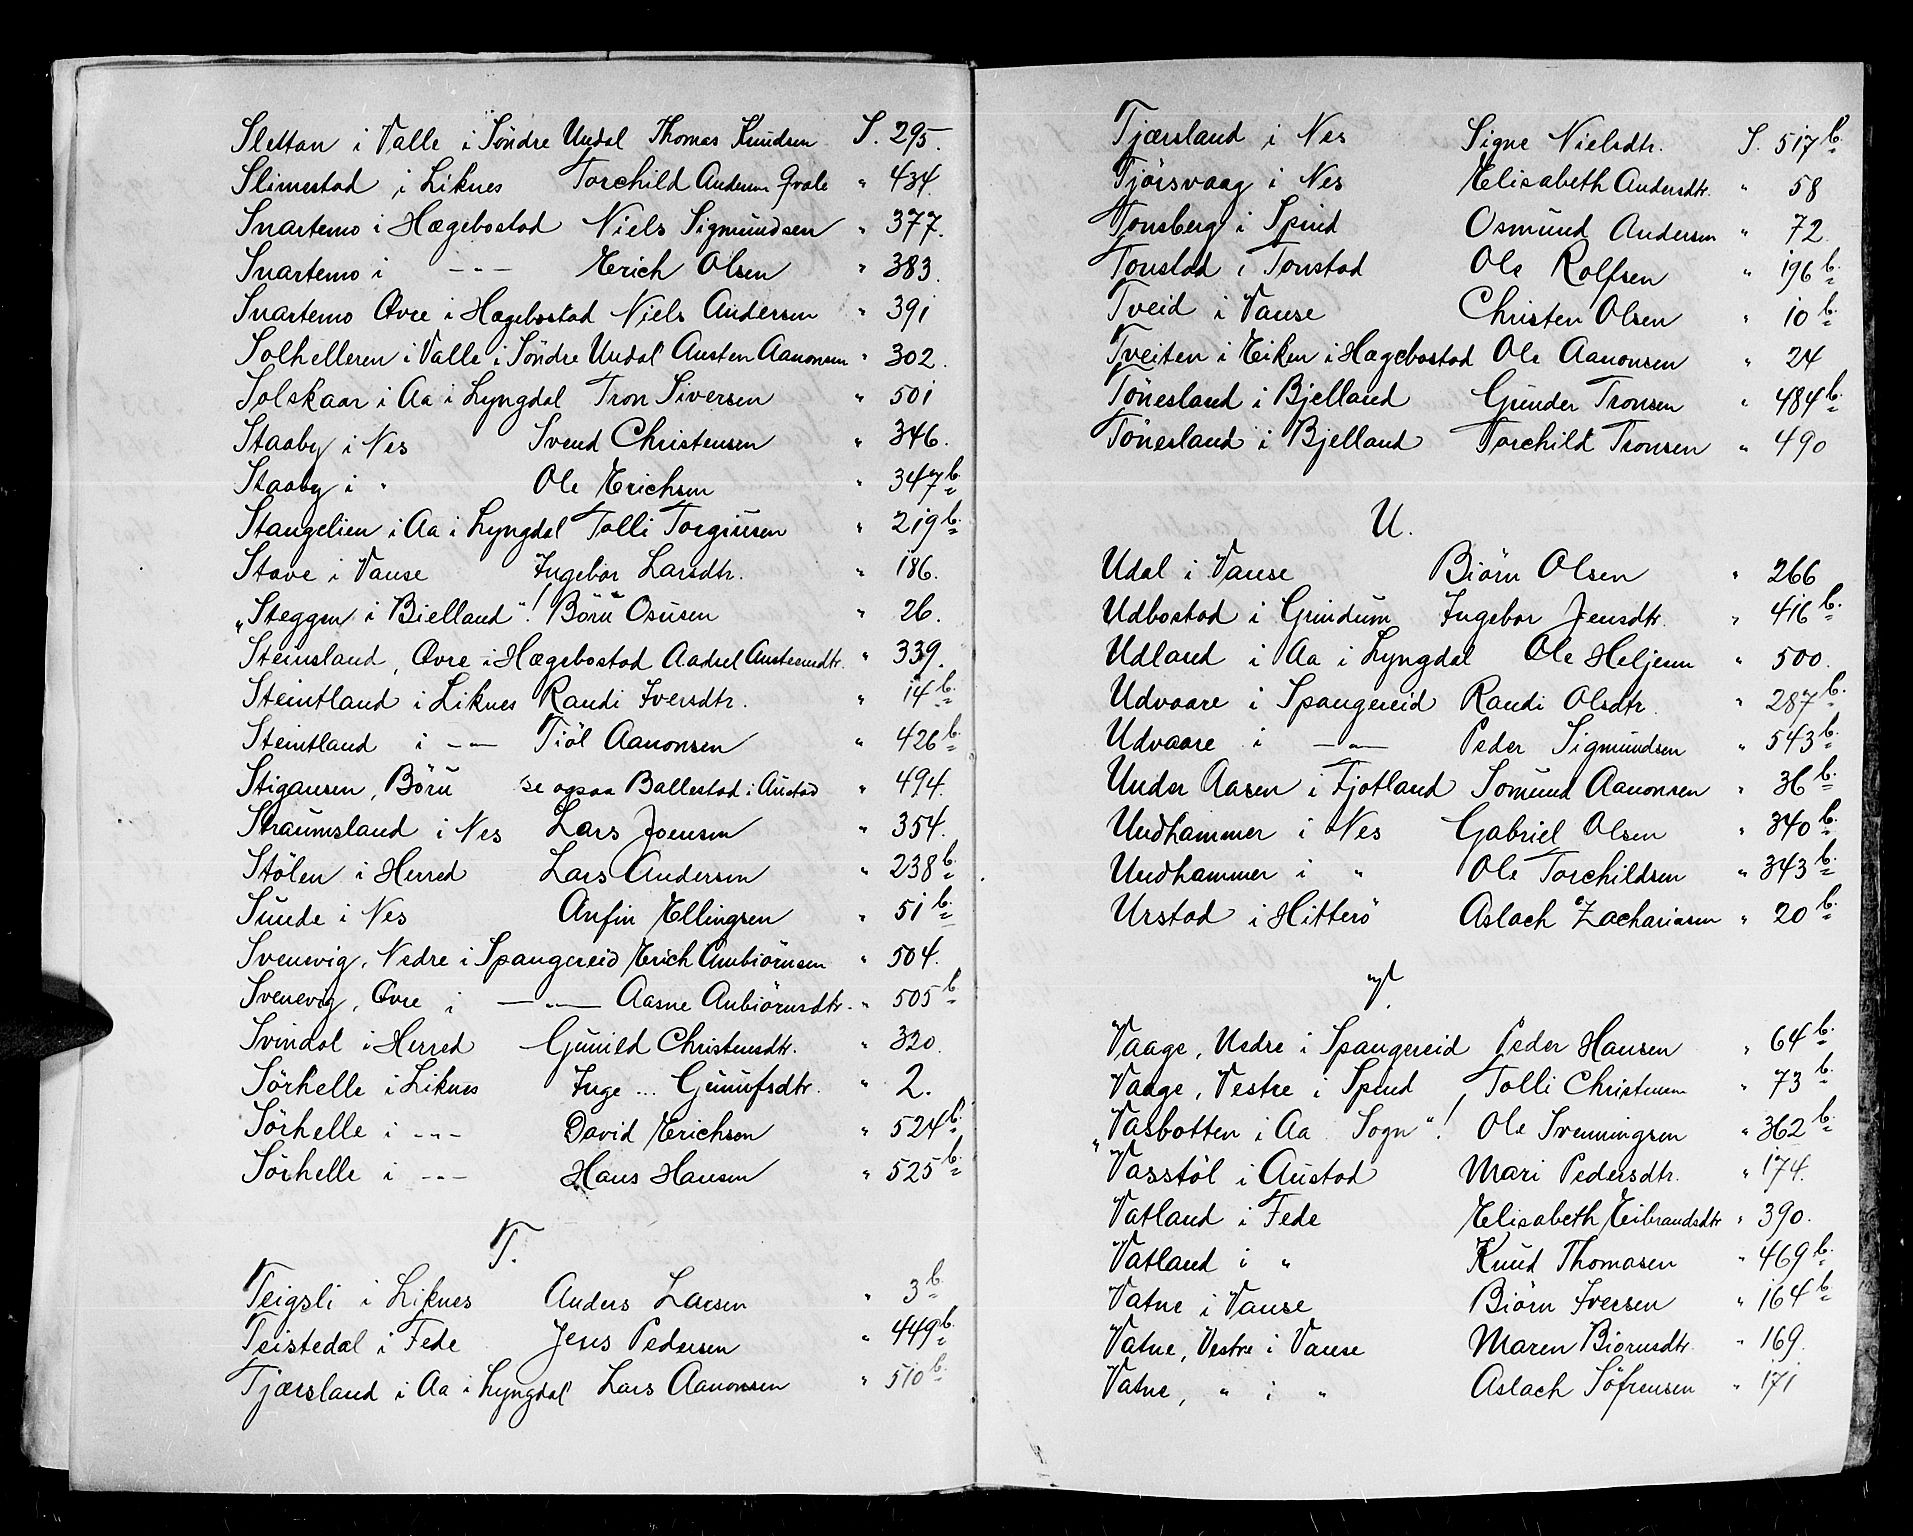 Slettan i Valle i Söndre Undal Thomas Knudsen S. 295.
Slimestad i Liknes Torchild Andersen Qvale " 434.
Snartemo i Hægebostad Niels Sigmundsen " 377.
Snartemo i - - - Erich Olsen " 383.
Snartemo Øvre i Hægebostad Niels Andersen " 391
Solhelleren i Valle i Söndre Undal Austen Aanonsen " 302.
Solskaar i Aa i Lyngdal Tron Siversen " 501
Staaby i Nes Svend Christensen " 346.
Staaby i " Ole Erichsen " 347 b.
Stangelien i Aa i Lyngdal Tolli Torgiusen " 219 b.
Stave i Vanse Ingebor Larsdtr. " 186.
"Steggen i Bielland"! Böru Osusen " 26.
Steinsland, Øvre i Hægebostad Aadsel Austensdtr. " 339.
Steintland i Liknes Randi Iversdtr. " 14 b.
Steintland i - " - Tiöl Aanonsen " 426 b.
Stigansen, Böru se ogsaa Ballestad i Austad " 494.
Straumsland i Nes Lars Joensen " 354.
Stölen i Herred Lars Andersen " 238 b.
Sunde i Nes Anfin Ellingsen " 51 b.
Svenevig, Nedre i Spangereid Erich Anbiörnsen " 504.
Svenevig, Øvre i - " - Aasne Anbiörnsdtr. " 505 b
Svindal i Herred Gunild Christensdtr. " 320.
Sörhelle i Liknes Inge ... Gunufsdtr. " 2.
Sörhelle i - - - David Erichson " 524 b.
Sörhelle i - - - Hans Hansen " 525 b.
T.
Teigsli i Liknes Anders Larsen " 3 b.
Teistedal i Fede Jens Pedersen " 449 b.
Tjærsland i Aa i Lyngdal Lars Aanonsen " 510 b.
Tjærsland i Nes Signe Nielsdtr. S. 517 b.
Tjörsvaag i Nes Elisabeth Andersdtr. " 58
Tjonsberg i Spind Osmund Andersen " 72
Tonstad i Tonstad Ole Rolfsen " 196 b.
Tveid i Vanse Christen Olsen " 10 b.
Tveiten i Eiken i Hægebostad Ole Aanonsen " 24
Tönesland i Bjelland Gunder Tronsen " 484 b.
Tönesland i Bjelland Torchild Tronsen " 490
U.
Udal i Vanse Biörn Olsen " 266
Udbostad i Grindum Ingebor Jensdtr. " 416 b.
Udland i Aa i Lyngdal Ole Heljesen " 500.
Udvaare i Spangereid Randi Olsdtr. " 287 b.
Udvaare i - " - Peder Sigmundsen " 543 b.
Under Aasen i Fjotland Somund Aanonsen " 36 b.
Undhammer i Nes Gabriel Olsen " 340 b.
Undhammer i " Ole Torchildsen " 343 b.
Urstad i Hitterö Aslach Zachariasen " 20 b.
V.
Vaage, Nedre i Spangereid Peder Hansen " 64 b.
Vaage, Vestre i Spind Tolli Christensen " 73 b.
"Vasbotten i Aa Sogn"! Ole Svenningsen " 362 b.
Vasstöl i Austad Mari Pedersdtr. " 174.
Vatland i Fede Elisabeth Eibrandsdtr " 390.
Vatland i " Knud Thomasen " 469 b.
Vatne i Vanse Biörn Iversen " 164 b.
Vatne, Vestre i Vanse Maren Biörnsdtr. " 169.
Vatne, " i " Aslach Söfrensen " 171